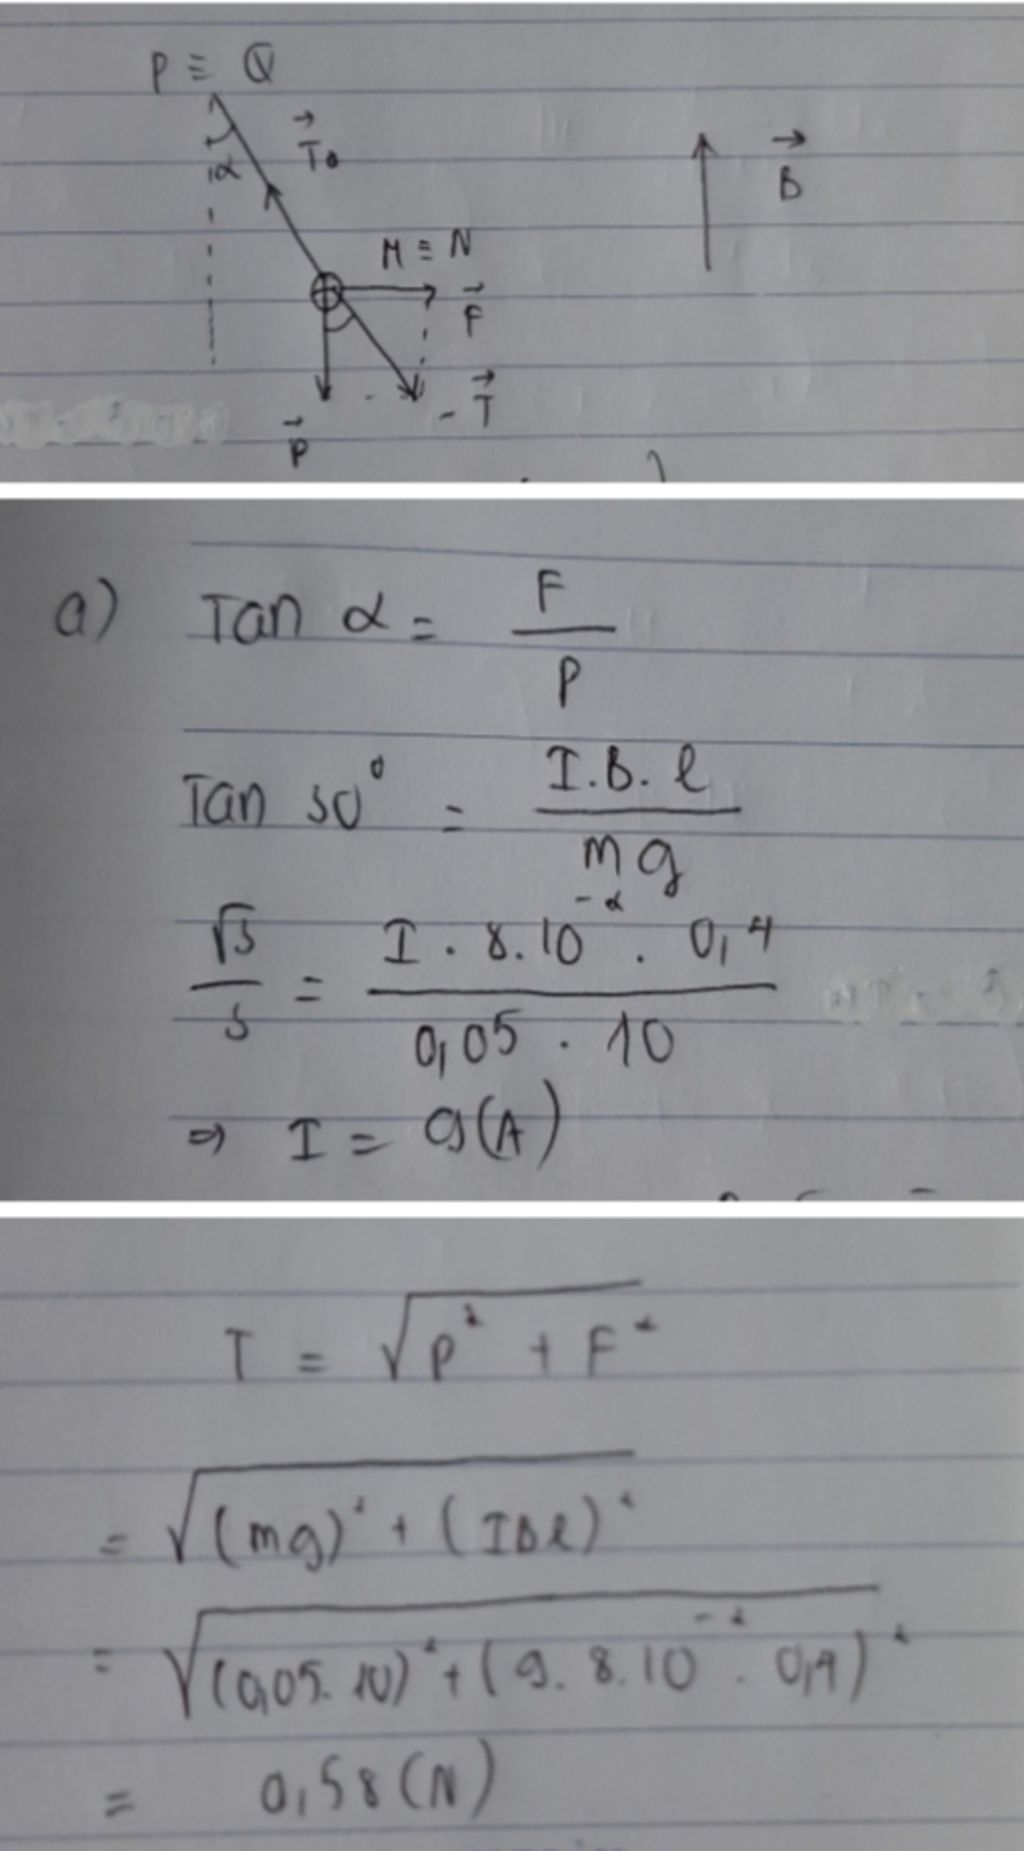 P ≡ Q
α
T₀
B
M ≡ N
F
P
- T
a) Tan α = F / P
Tan 30° = I.B.l / mg
√3 / 3 = I . 8.10⁻² . 0,4 / 0,05 . 10
⇒ I = 9(A)
T = √(P² + F²)
= √((mg)² + (IBl)²)
= √((0,05.10)² + (9.8.10⁻² . 0,4)²)
= 0,58(N)